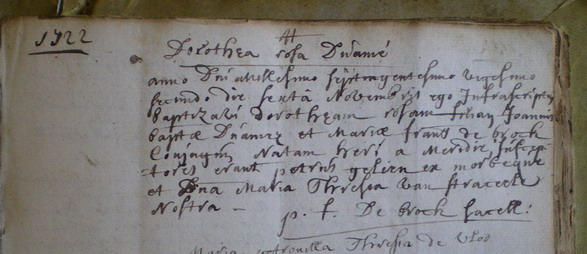 1722
Dorothea rosa Dñamé
anno Dni Millesimo septingentesimo vigesimo
secundo die sexta Novembris ego Infrascriptus
baptizavi dorotheam rosam filiam Joannis
baptæ Dñamez et Mariæ frans de broch
Conjugum Natam heri a Meridie suscep-
tores erant petrus gelein ex morbeque
et Dna Maria Thresia van straceele
Nostra -
p. f. De broch sacell:
Maria petronilla Thresia de Vloo